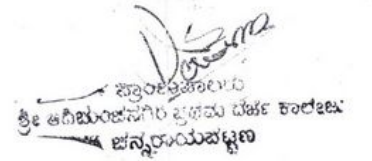 ಪ್ರಾಂಶುಪಾಲರು
ಶ್ರೀ ಆದಿಚುಂಚನಗಿರಿ ಪ್ರಥಮ ದರ್ಜೆ ಕಾಲೇಜು
ಚನ್ನರಾಯಪಟ್ಟಣ